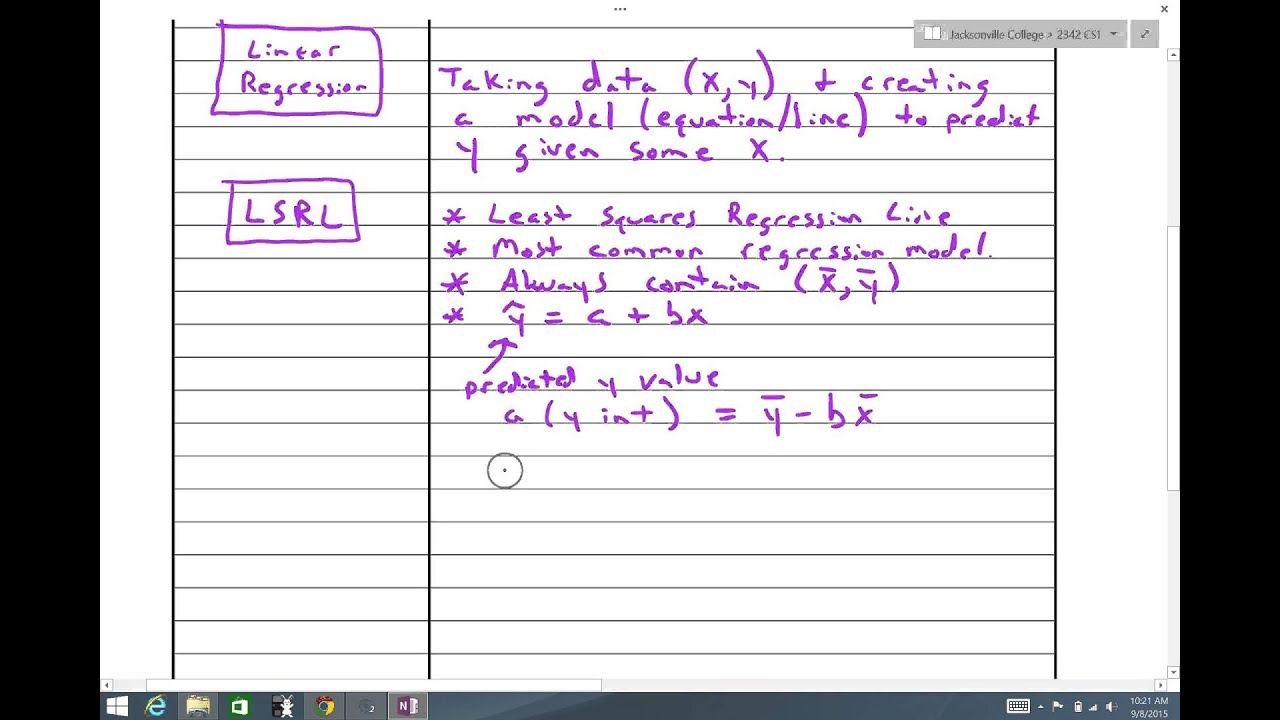 Jacksonville College > 2342 CS1
Linear
Regression
Taking data (x, y) + creating
a model (equation/line) to predict
y given some x.
LSRL
* Least Squares Regression Line
* Most common regression model.
* Always contain (x̄, ȳ)
* ŷ = a + bx
predicted y value
a (y int) = ȳ - bx̄
10:21 AM
9/8/2015